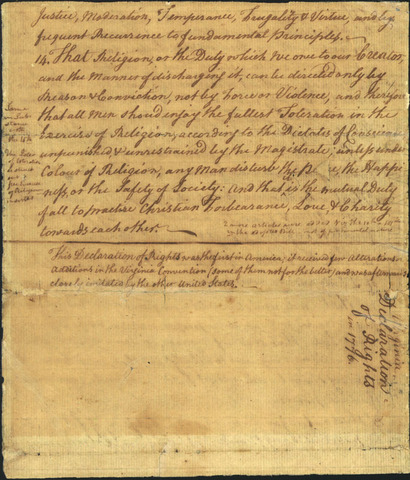 Justice, Moderation, Temperance, Frugality & Virtue, and by
frequent Recurrence to fundamental Principles.
14. That Religion, or the Duty which we owe to our Creator,
and the Manner of discharging it, can be directed only by
Reason & Conviction, not by Force or Violence, and therefore
that all Men should enjoy the fullest Toleration in the
Exercise of Religion, according to the Dictates of Conscience
unpunished & unrestrained by the Magistrate; unless under
Colour of Religion, any Man disturb the Peace, the Happi
ness, or the Safety of Society: And that is the mutual Duty
of all to practise Christian Forbearance, Love & Charity
towards each other.
This Declaration of Rights was the first in America; it received few Alterations
Additions in the Virginia Convention (some of them not for the better) and was afterwards
closely imitated by the other United States.
Virginia
Declaration
of Rights
in 1776.